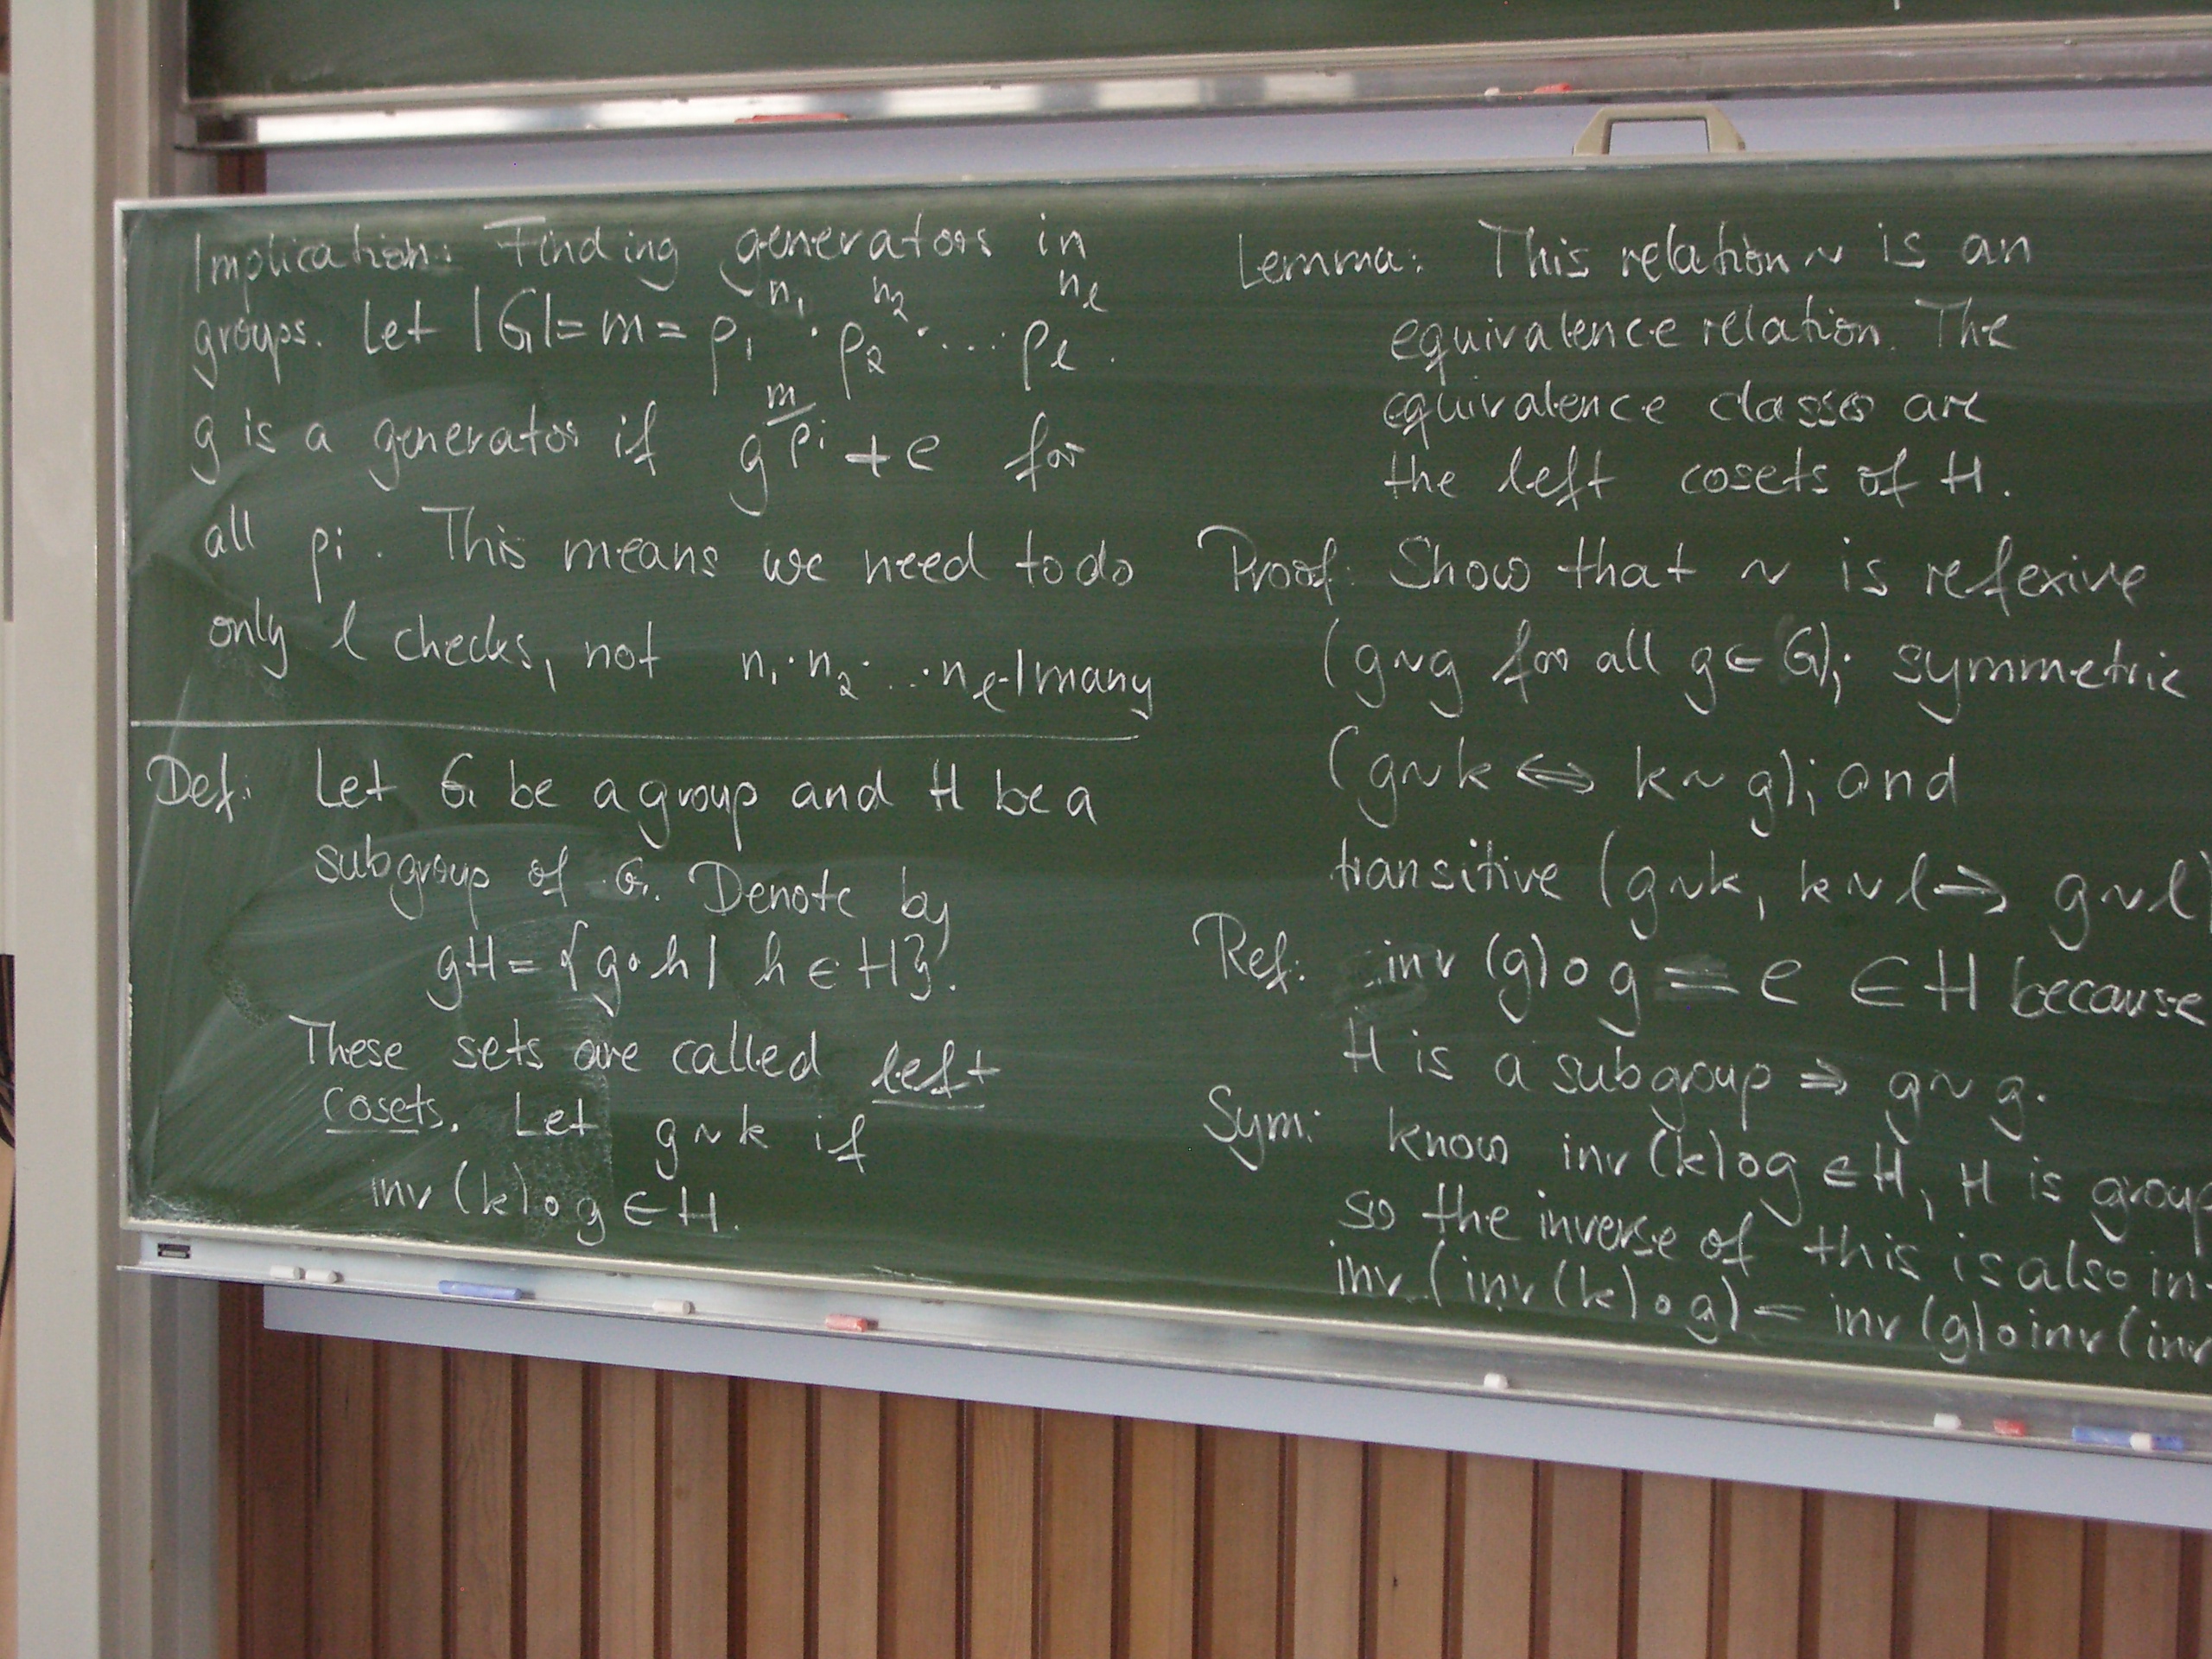 Implication: Finding generators in
groups. Let |G|=m= p₁^n₁ · p₂^n₂ · ... pₗ^nₗ.
g is a generator if g^(m/pᵢ) ≠ e for
all pi. This means we need to do
only l checks, not n₁·n₂· ..·nₗ-1 many
Def: Let G be a group and H be a
subgroup of G. Denote by
gH = {g∘h | h ∈ H}.
These sets are called left
cosets. Let g~k if
inv (k)∘g ∈ H.
Lemma: This relation ~ is an
equivalence relation. The
equivalence classes are
the left cosets of H.
Proof: Show that ~ is refexive
(g~g for all g∈G); symmetric
(g~k ⇔ k~g); and
transitive (g~k, k~l → g~l)
Ref: inv (g)∘g = e ∈ H because
H is a subgroup ⇒ g~g.
Sym: know inv (k)∘g ∈ H, H is group
so the inverse of this is also in
inv (inv (k)∘g) = inv (g)∘inv (inv